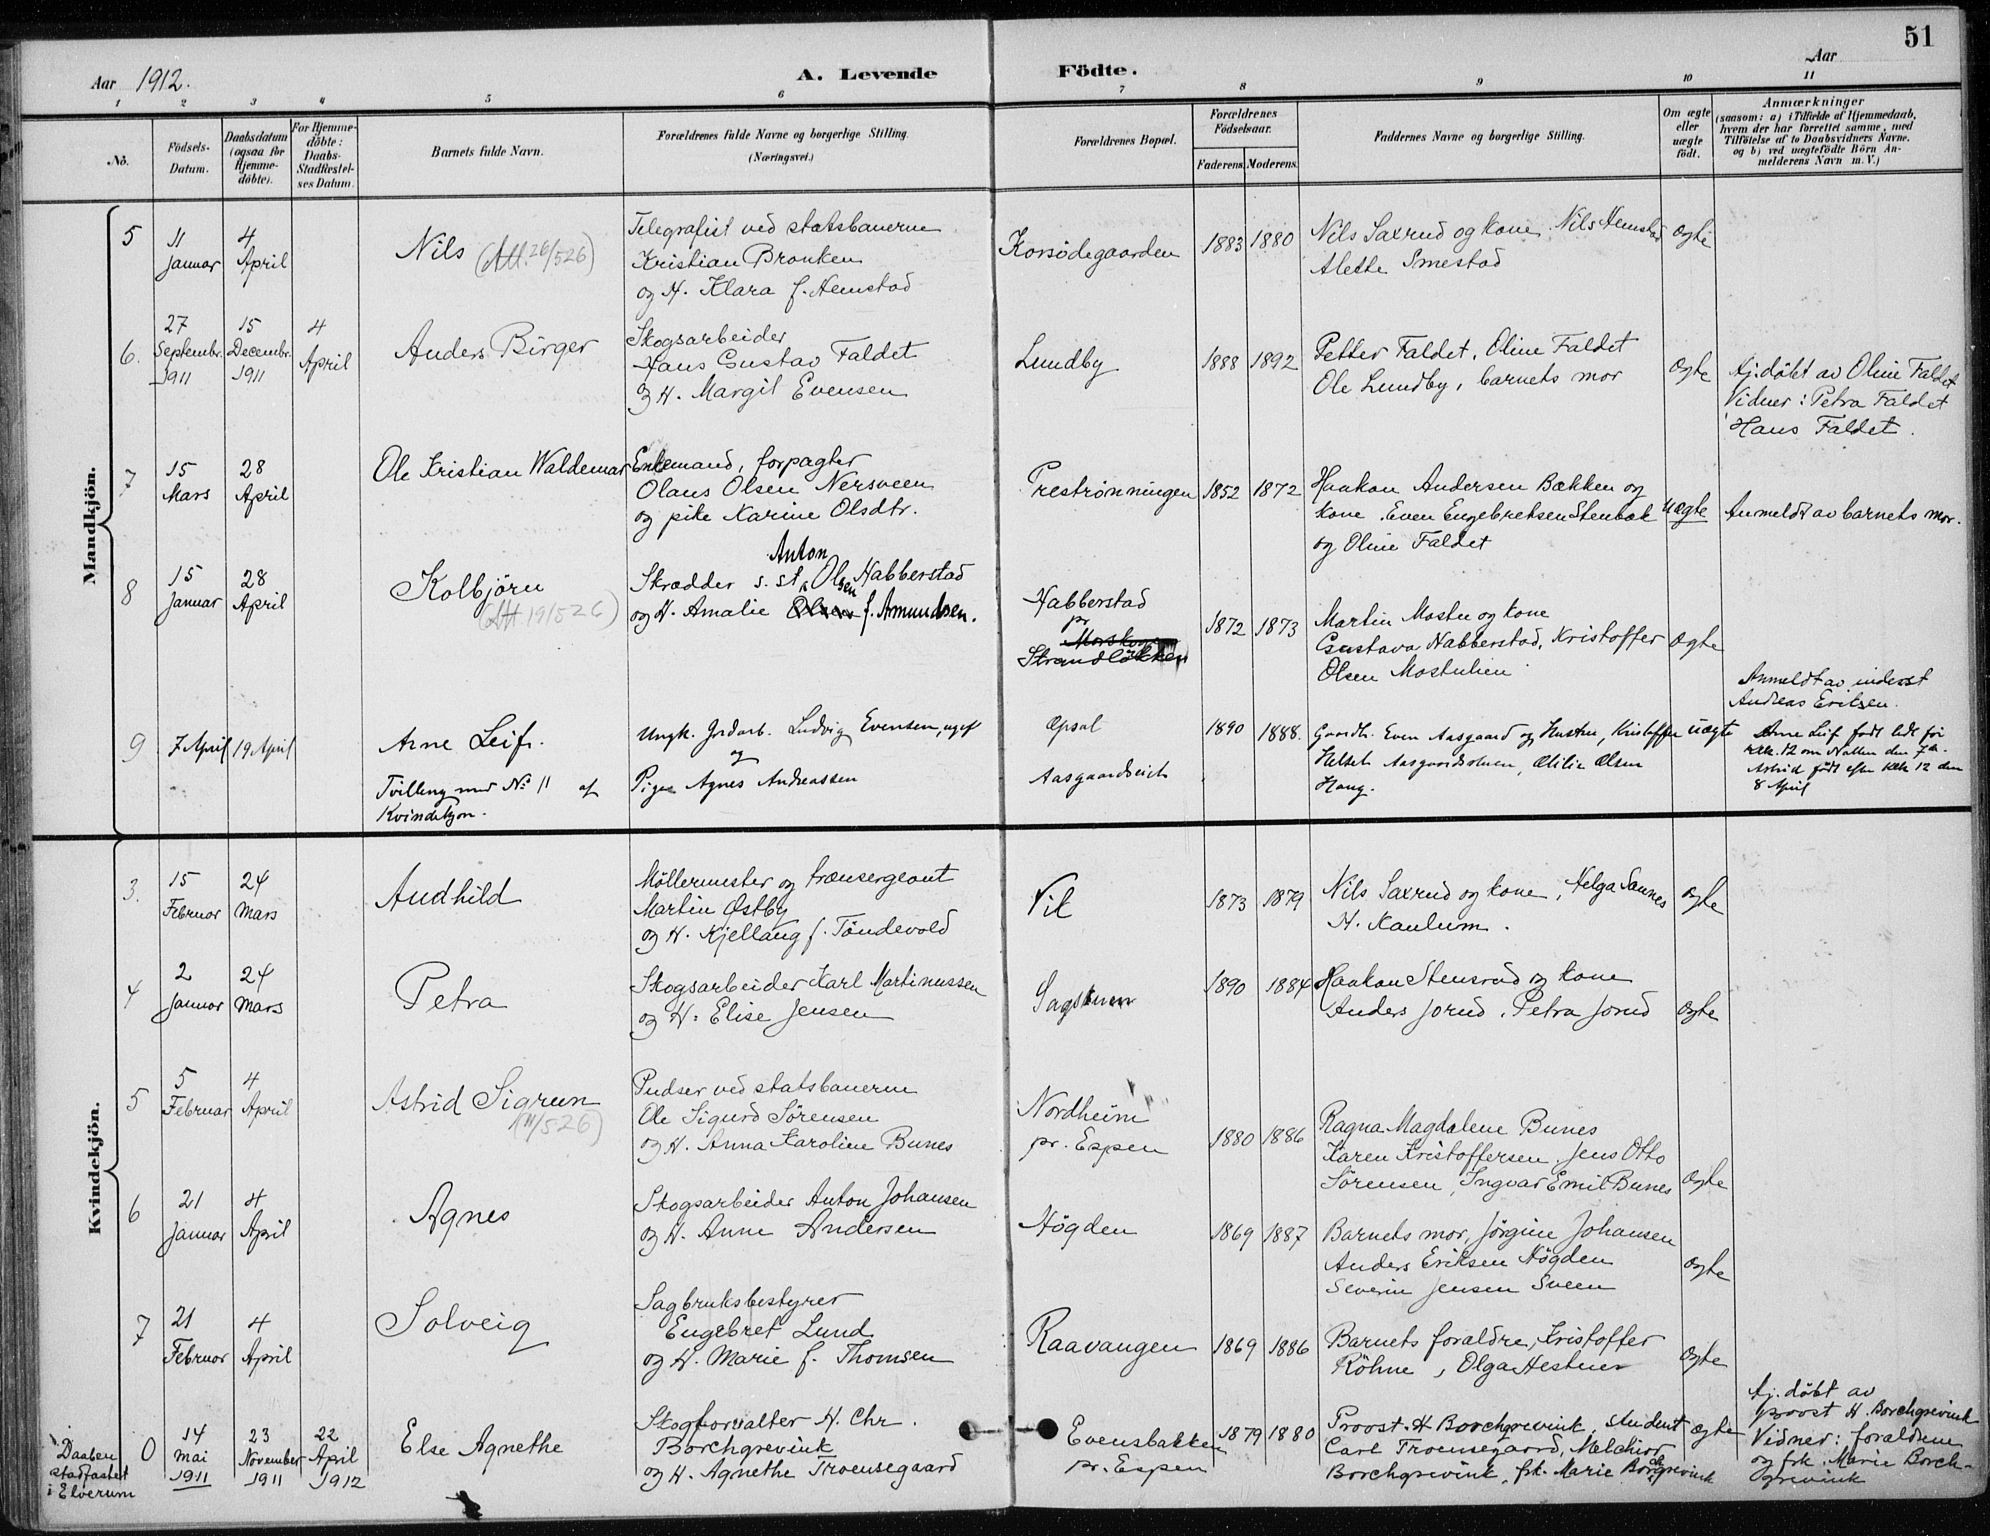 51
Aar 1912.
A. Levende Födte.
Aar
1 2 3 4 5 6 7 8 9 10 11
No.
Födsels-Datum.
Daabsdatum (ogsaa for Hjemme-döbte).
For Hjemme-döbte: Daabs-Stadfæstel-ses Datum.
Barnets fulde Navn.
Forældrenes fulde Navne og borgerlige Stilling. (Næringsvei.)
Forældrenes Bopæl.
Forældrenes Födselsaar.
Faderens. Moderens.
Faddernes Navne og borgerlige Stilling.
Om ægte eller uægte født.
Anmærkninger
(saasom: a) i Tilfælde af Hjemmedaab,
hvem der har forrettet samme, med
Tilföielse af to Daabsvidners Navne.
og b) ved uægtefödte Börn An-
melderens Navn m. V.)
Mandkjön.
5
11 Januar
4 April
Nils (Att. 26/526)
Telegrafist ved statsbanerne
Kristian Bronken
og H. Klara f. Hemstad
Korsödegaarden
1883 1880
Nils Saxrud og kone. Nils Hemstad
Alette Smestad
ægte
6.
27 Septembr. 1911
15 Decembr. 1911
4 April
Anders Birger
Skogsarbeider
Hans Gustav Faldet
og H. Margit Evensen
Lundby
1888 1892
Petter Faldet, Oline Faldet
Ole Lundby, barnets mor
ægte
Hj.döbt av Oline Faldet
Vidner: Petra Faldet
Hans Faldet.
7
15 Mars
28 April
Ole Kristian Waldemar
Enkemand, forpagter
Olaus Olsen Nersveen
og pike Karine Olsdtr.
Prestrønningen
1852 1872
Haakon Andersen Bækken og
kone. Even Engebretsen Stenbæk
og Oline Faldet
uægte
Anmeldt av barnets mor.
8
15 Januar
28 April
Kolbjörn
(Att 19/526)
Anton
Skrædder s. st. Olsen Habberstad
og H. Amalie Olsen f. Amundsen.
Habberstad
pr
Morskogen
Strandlökken
1872 1873
Martin Mostu og kone
Gustava Habberstad, Kristoffer
Olsen Mostulien
ægte
9
7 April
19 April
Arne Leif.
Tvilling med No 11 af
Kvindekjøn.
Ungk. Jordarb. Ludvig Evensen, ugift
og
Pige Agnes Andreassen
Opsal
Aasgaardseiet
1890 1888.
Gaardbr. Even Aasgaard og Hustru, Kristoffer
Helset Aasgaardstuen, Otilie Olsen
Haug.
uægte
Anmeldt av inderst
Andreas Eriksen.
Arne Leif født lidt før
Kl. 12 om Natten den 7de.
Astrid født efter Kl. 12 den
8 April
Kvindekjön.
3.
15 Februar
24 Mars
Audhild
Möllermester og trænsergeant
Martin Østby
og H. Kjellaug f. Töndevold
Vik
1873 1879
Nils Saxrud og kone, Helga Sannes
H. Kaulum.
ægte
4
2 Januar
24 Mars
Petra
Skogsarbeider Karl Martinussen
og H. Elise Jensen
Sagstuen
1890 1884
Haakon Stensrud og kone
Anders Jorud. Petra Jorud
ægte
5
5 Februar
4 April
Astrid Sigrun
(11/526)
Pudser ved statsbanerne
Ole Sigurd Sørensen
og H. Anna Karoline Bunes
Nordheim
pr. Espen
1880 1886
Ragna Magdalene Bunes
Karen Kristoffersen. Jens Otto
Sörensen, Ingvar Emil Bunes
ægte
6
21 Januar
4 April
Agnes
Skogsarbeider Anton Johansen
og H. Anne Andersen
Högden
1869 1887
Barnets mor, Jörgine Johansen
Anders Eriksen Högden
Severin Jensen Sveen
ægte
7
21 Februar
4 April
Solveig
Sagbruksbestyrer
Engebret Lund
og H. Marie f. Thomsen
Raavangen
1869 1886
Barnets forældre, Kristoffer
Röhne, Olga Hestnes
ægte
Daaben
stadfæstet
i Elverum
0
14 mai 1911
23 November 1911
22 April 1912
Else Agnethe
Skogforvalter H. Chr.
Borchgrevink
og H. Agnethe Troensegaard
Evensbakken
pr. Espen
1879 1880
Proost H Borchgrevink, student
Carl Troensegaard, Melchior
Borchgrevink, frk. Marie Borchgrevink
ægte
Hj. döbt av
proost H. Borchgrevink
Vidner: forældrene
og frk. Marie Borch-
grevink